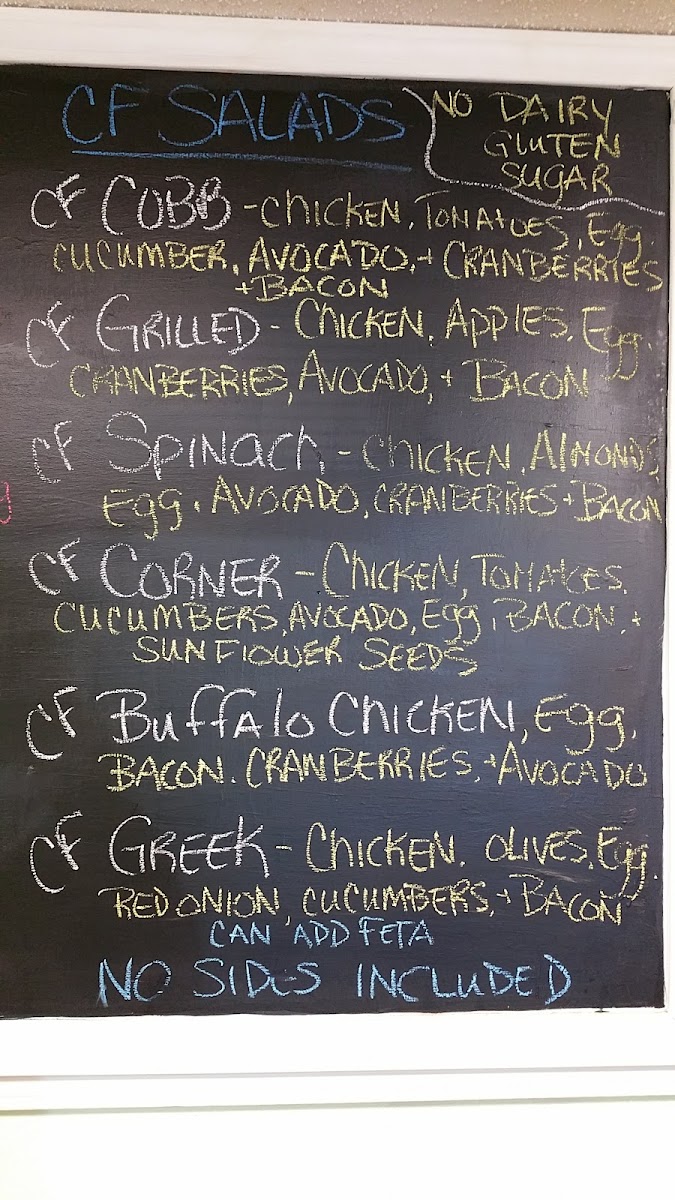 CF SALADS
NO DAIRY
GLUTEN
SUGAR
CF COBB - CHICKEN, TOMATOES, Egg,
CUCUMBER, AVOCADO, + CRANBERRIES
+ BACON
CF GRILLED - CHICKEN, APPLES, Egg,
CRANBERRIES, AVOCADO, + BACON
CF SPINACH - CHICKEN, ALMONDS,
Egg, AVOCADO, CRANBERRIES + BACON
CF CORNER - CHICKEN, TOMATOES,
CUCUMBERS, AVOCADO, Egg, BACON, +
SUNFLOWER SEEDS
CF Buffalo CHICKEN, Egg,
BACON, CRANBERRIES, + AVOCADO
CF GREEK - CHICKEN, OLIVES, Egg,
RED ONION, CUCUMBERS, + BACON
CAN ADD FETA
NO SIDES INCLUDED